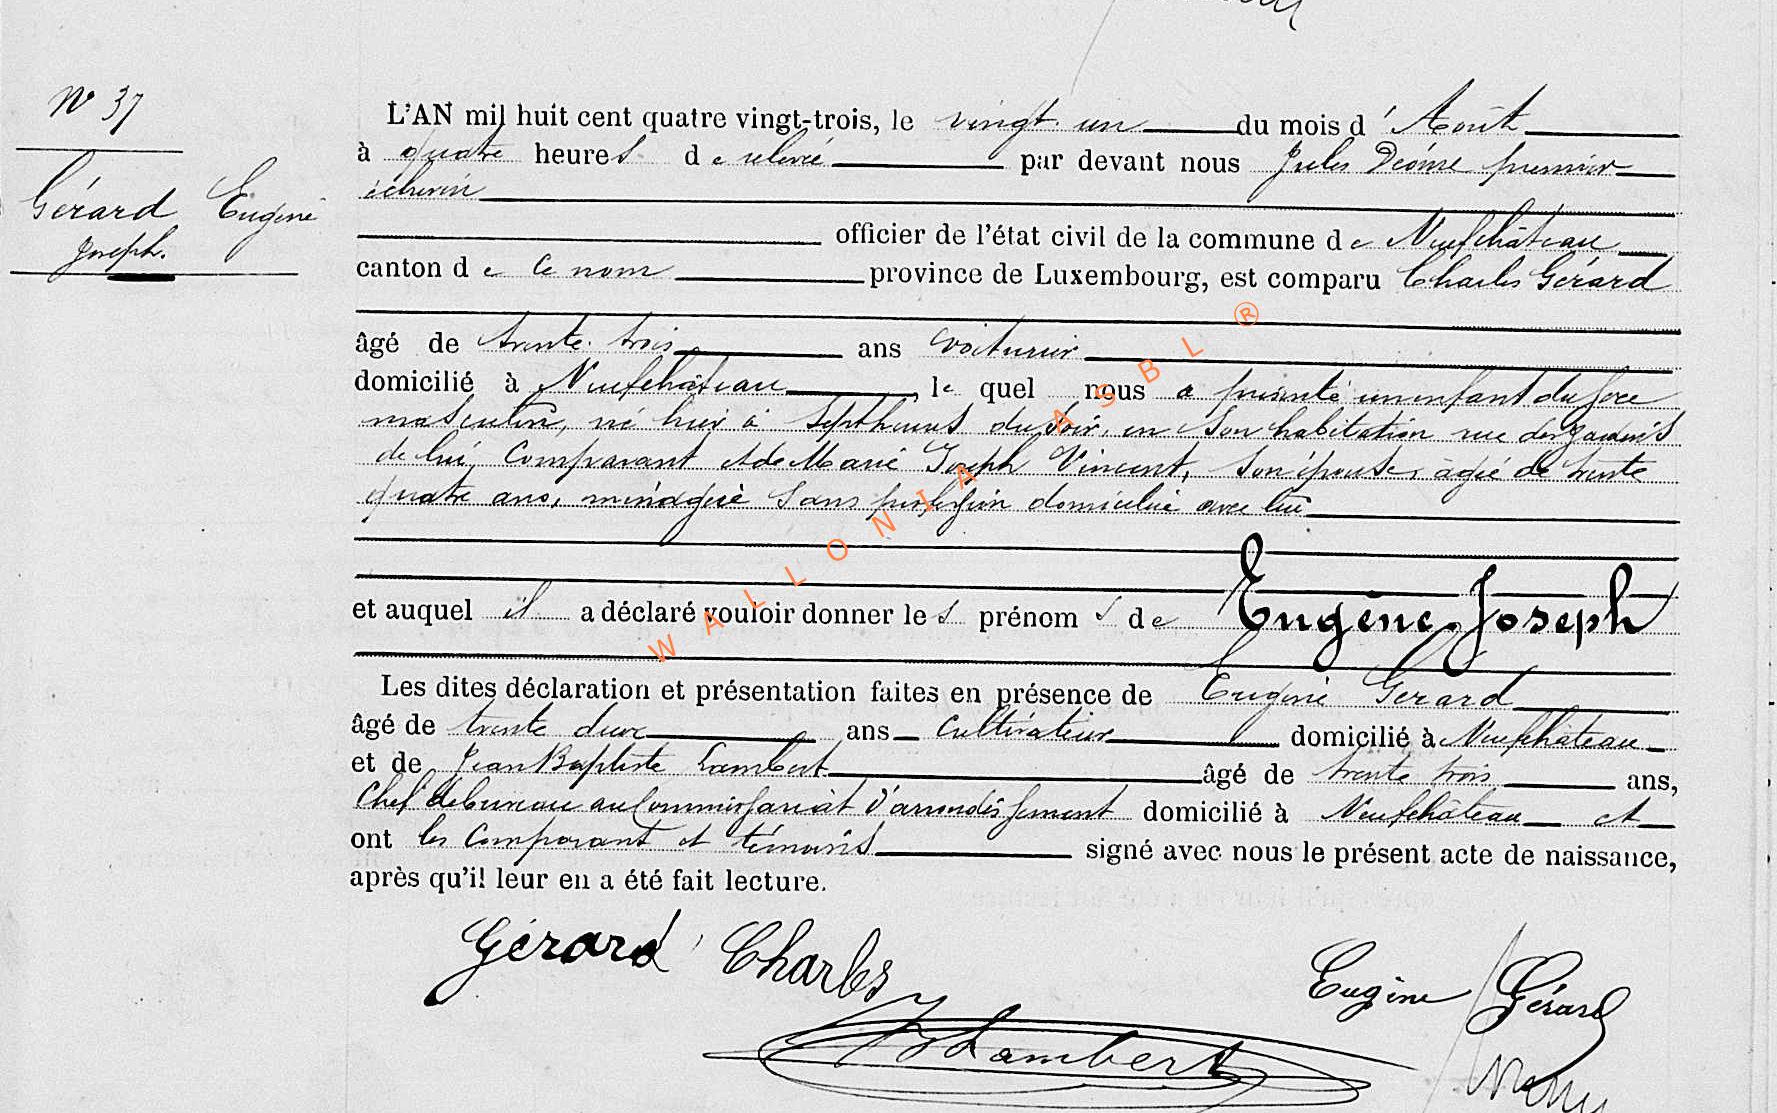 N° 37
Gérard Eugène
Joseph.
L'AN mil huit cent quatre vingt-trois, le vingt un du mois d' Août
à quatre heures de relevée par devant nous Jules premier
échevin
officier de l'état civil de la commune de Neufchâteau
canton de ce nom province de Luxembourg, est comparu Charles Gérard
âgé de trente trois ans voiturier
domicilié à Neufchâteau, le quel nous a présenté un enfant du sexe
masculin, né hier à sept heures du soir, en son habitation rue
de lui, Comparant et de Marie Joseph Vincent, son épouse, agée de trente
quatre ans, ménagère sans profession domiciliée avec lui
et auquel il a déclaré vouloir donner les prénoms de Eugène Joseph
Les dites déclaration et présentation faites en présence de Eugène Gérard
âgé de trente deux ans cultivateur domicilié à Neufchâteau
et de Jean Baptiste Lambert âgé de trente trois ans,
Chef de bureau au Commissariat d'arrondissement domicilié à Neufchâteau et
ont les comparant et témoins signé avec nous le présent acte de naissance,
après qu'il leur en a été fait lecture.
Gérard Charles
Eugène Gérard
Lambert
WALLONIA ASBL ®